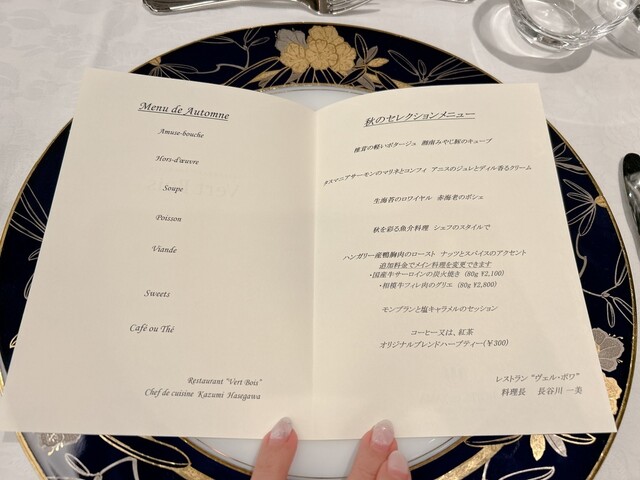 Menu de Automne
Amuse-bouche
Hors-d'œuvre
Soupe
Poisson
Viande
Sweets
Café ou Thé
Restaurant "Vert Bois"
Chef de cuisine Kazumi Hasegawa
秋のセレクションメニュー
椎茸の軽いポタージュ 湘南みやじ豚のキューブ
タスマニアサーモンのマリネとコンフィ アニスのジュレとディル香るクリーム
生海苔のロワイヤル 赤海老のポシェ
秋を彩る魚介料理 シェフのスタイルで
ハンガリー産鴨胸肉のロースト ナッツとスパイスのアクセント
追加料金でメイン料理を変更できます
・国産牛サーロインの炭火焼き (80g ¥2,100)
・相模牛フィレ肉のグリエ (80g ¥2,800)
モンブランと塩キャラメルのセッション
コーヒー又は、紅茶
オリジナルブレンドハーブティー(¥300)
レストラン "ヴェル・ボワ"
料理長 長谷川 一美